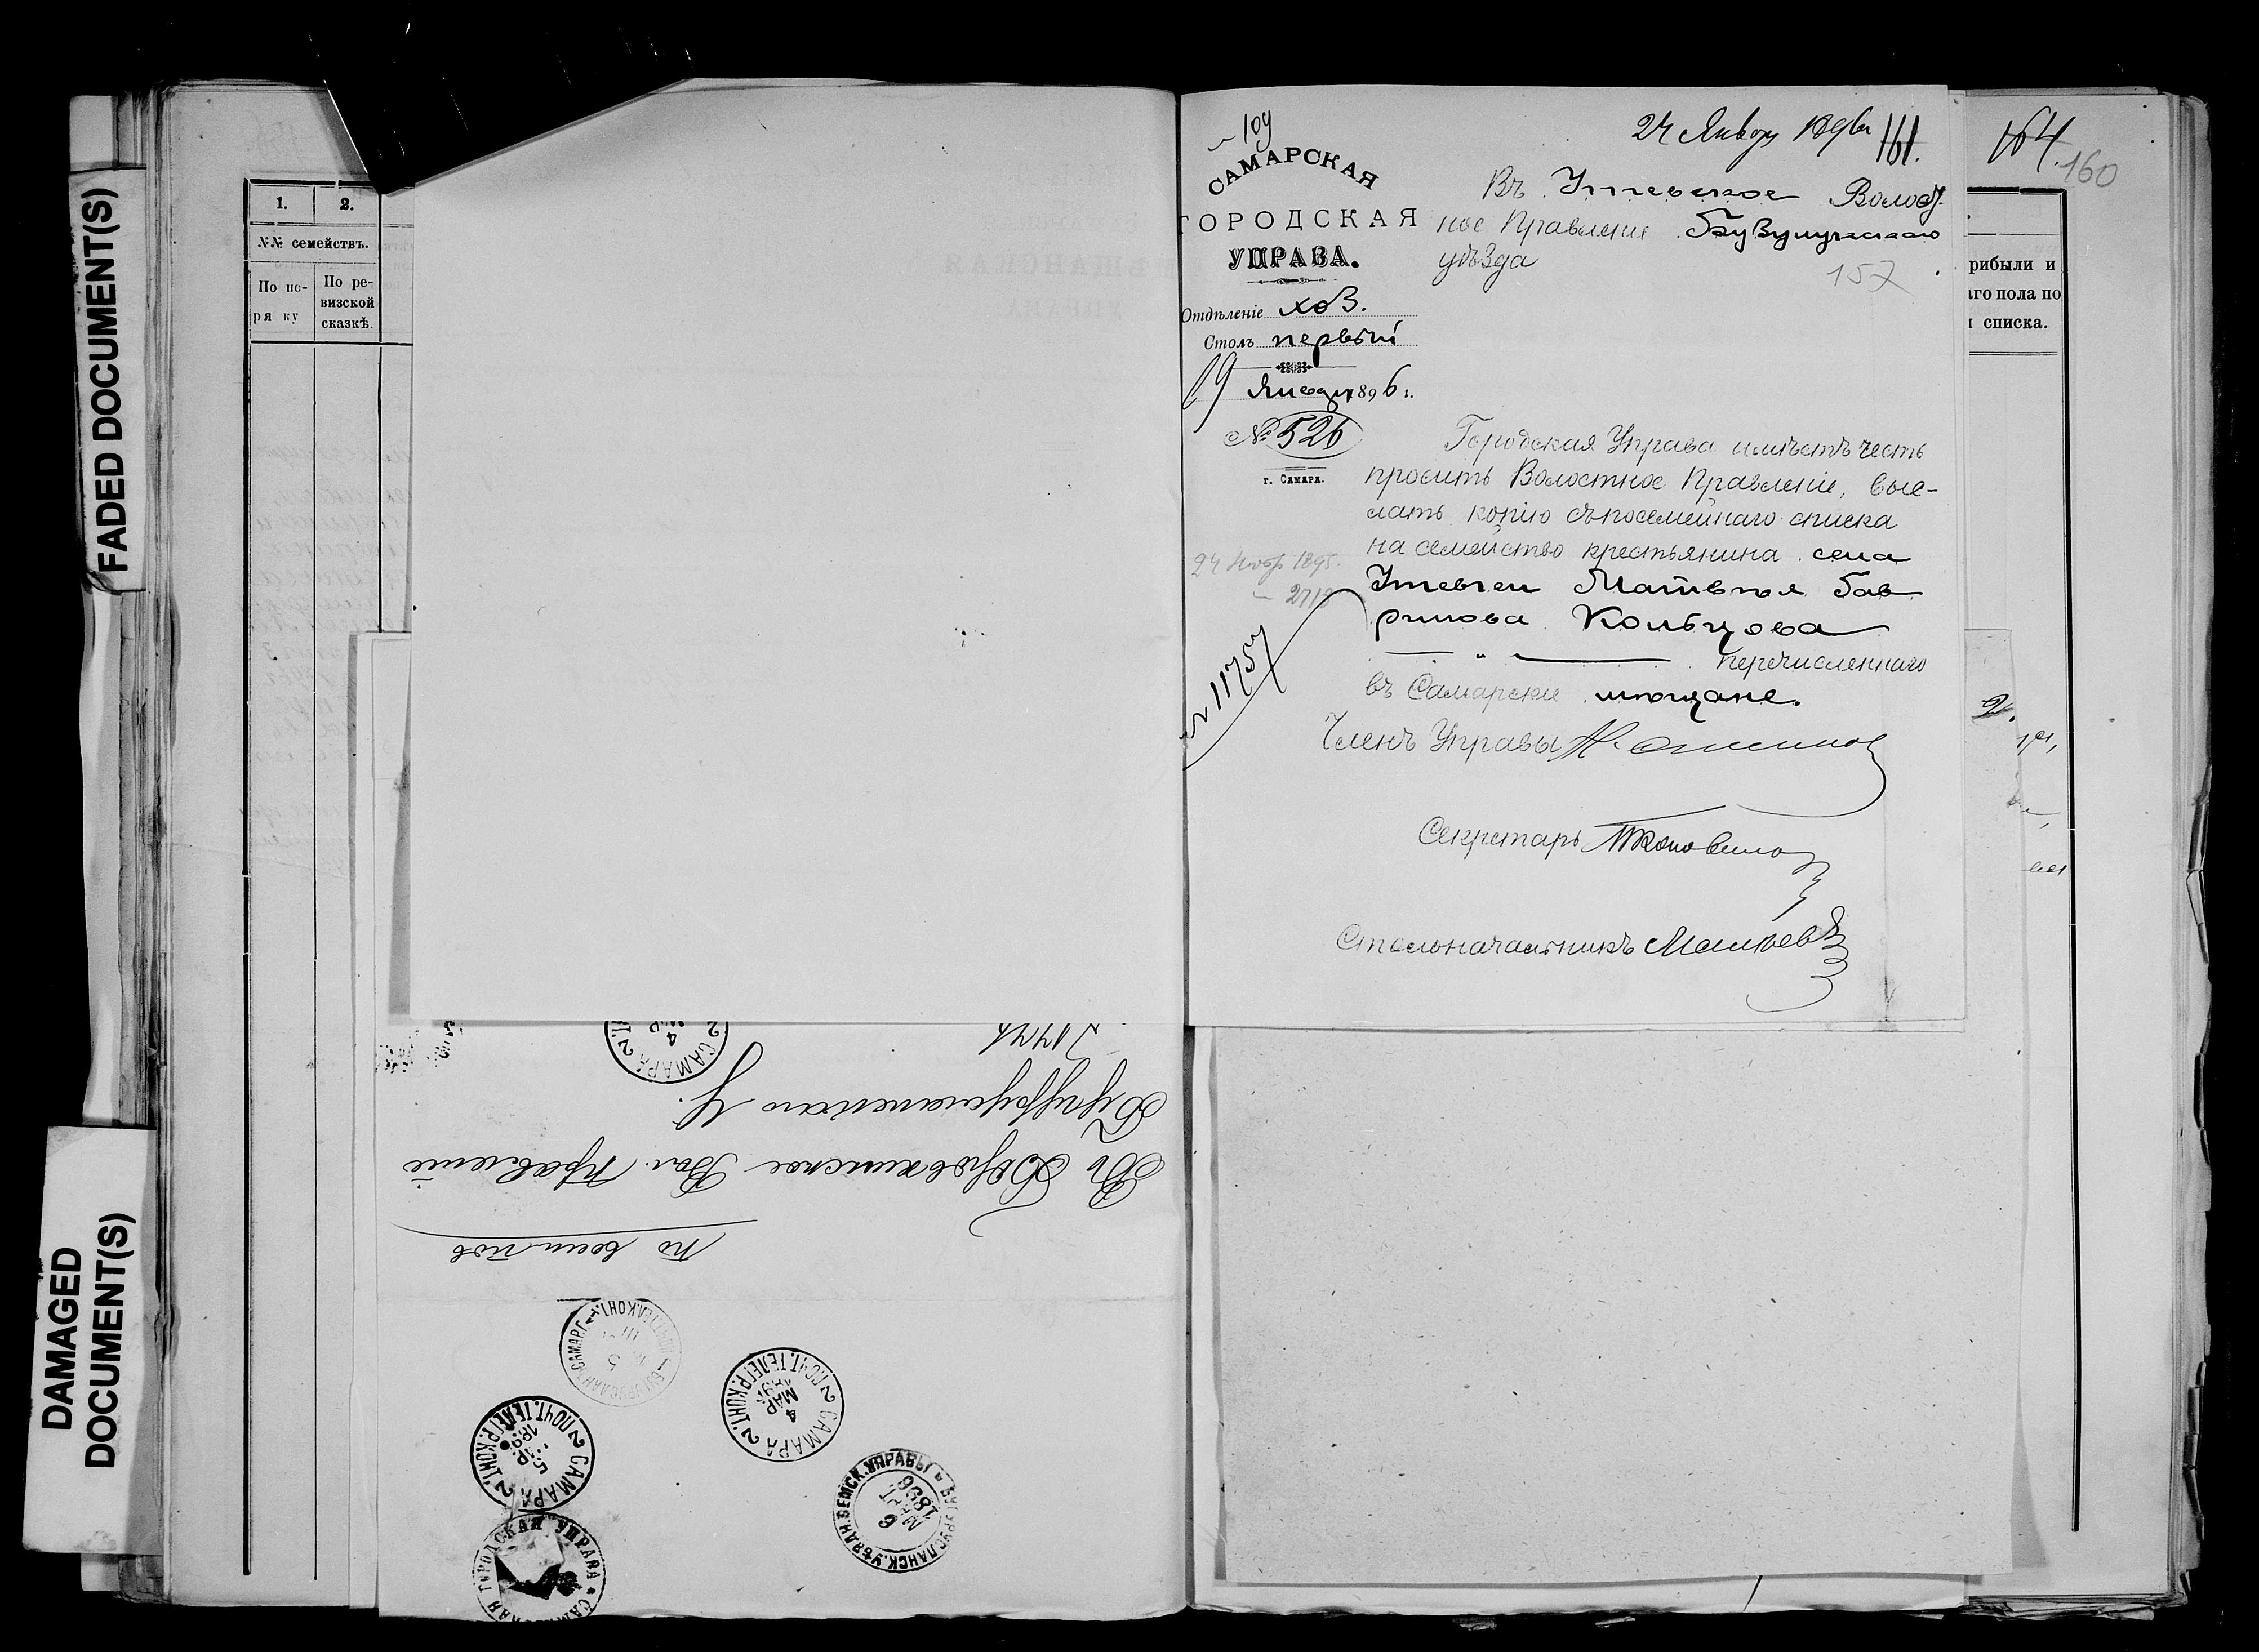 FADED DOCUMENT(S)
DAMAGED
DOCUMENT(S)
1.
2.
№№ семействъ.
По по-
ря ку
По ре-
визской
сказкѣ.
109
САМАРСКАЯ
ГОРОДСКАЯ
УПРАВА.
Отдѣленіе хоз.
Столъ первый
19 Января 1896 г.
№ 526
г. Самара.
24 Января 1896
161.
Въ Утевское Волост
ное Правленіе Бузулукскаго
уѣзда
157
Городская Управа имѣетъ честь
просить Волостное Правленіе, выс-
лать копію съ посемейнаго списка
на семейство крестьянина села
Утевки Матвѣя Гав
рилова Кольцова
перечисленнаго
въ Самарскіе мѣщане.
24 Нояб 1895.
11757
Членъ Управы
Секретарь
Столоначальникъ
164.
160
рибыли и
аго пола по
списка.
2.
4
САМАРА
Въ Боровкинское Вол. Правленіе
Бугурусланскаго У.
БУГУРУСЛАНЪ САМАР.Г.
5
САМАРА
4
МАР
189
ПОЧТ.ТЕЛЕГР.КОНТ.
САМАРА
5
189
ПОЧТ.ТЕЛЕГР.КОНТ.
БУГУРУСЛАНСК.УѢЗДН.ЗЕМСК.УПРАВЫ
6
МАРТ
1896
САМАРСКАЯ ГОРОДСКАЯ УПРАВА